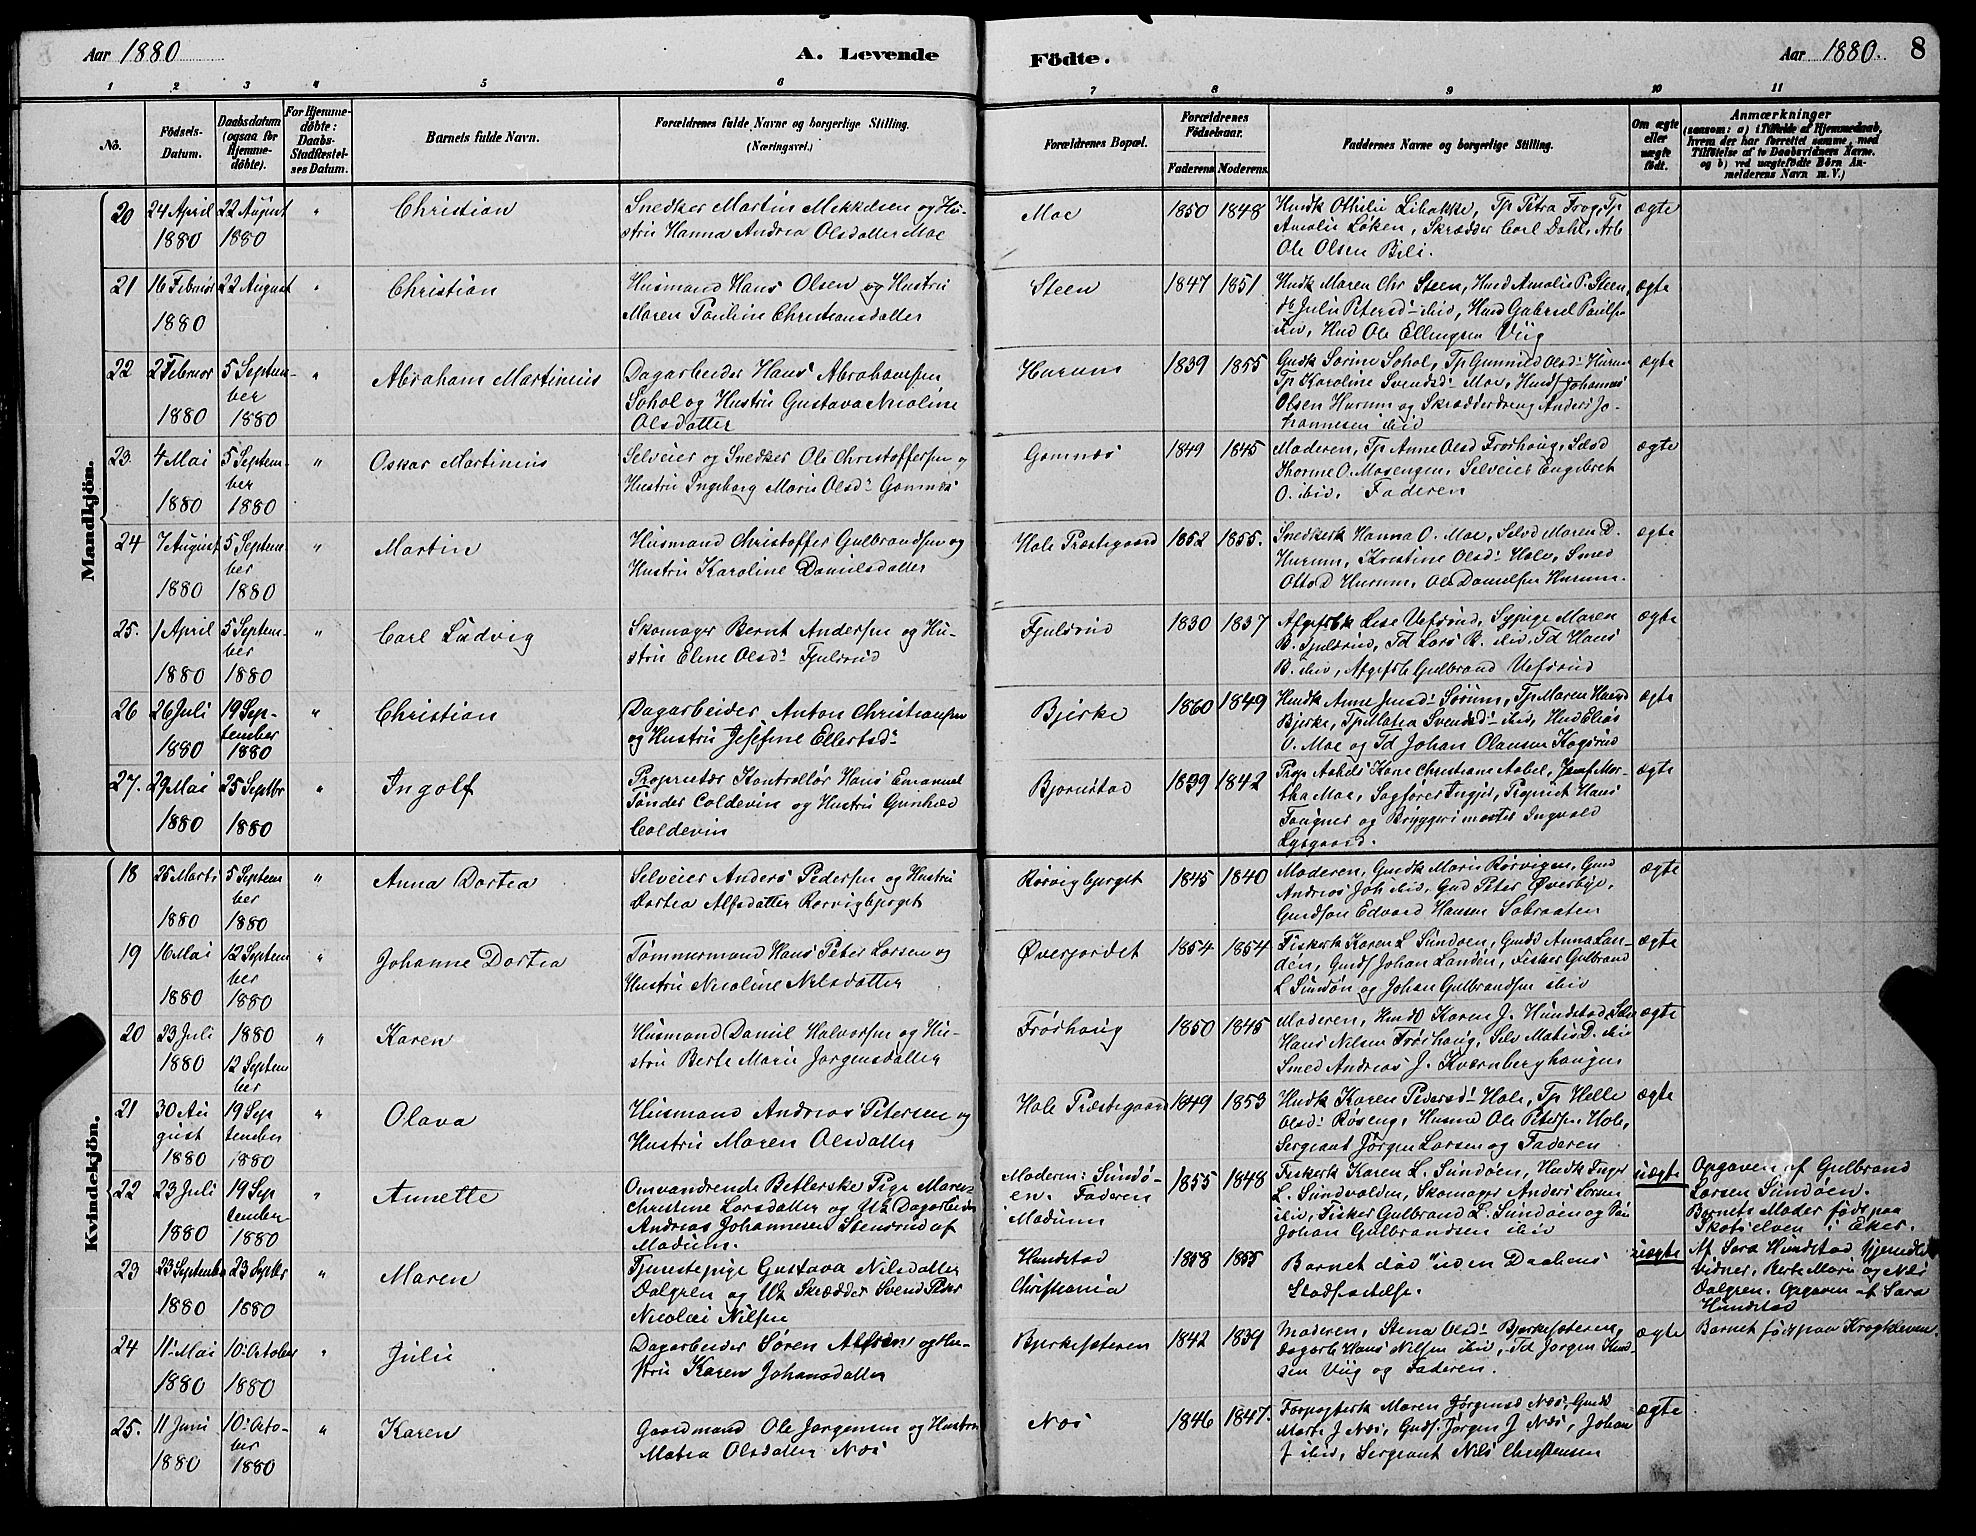 Aar 1880 A. Levende
Fødte. Aar 1880. 8
1 2 3 4 5 6
7 8 9 10 11
No. Fødsels-Datum. Daabsdatum (ogsaa for Hjemme-døbte). For Hjemme-døbte: Daabs-Stadfæstel-ses Datum. Barnets fulde Navn. Forældrenes fulde Navne og borgerlige Stilling. (Næringsvei.)
Forældrenes Bopæl. Forældrenes Fødselsaar. Faderens Moderens. Faddernes Navne og borgerlige Stilling. Om ægte eller uægte født. Anmærkninger
(saasom: a) i Tilfælde af Hjemmedaab,
hvem der har forrettet samme, med
Tilføielse af to Daabsvidners Navne.
og b) ved uægtefødte Børn An-
melderens Navn m. V.)
Mandkjøn.
20 24 April 1880 22 August 1880 " Christian
Snedker Martin Mikkelsen og Hu-
stru Hanna Andrea Olsdatter Moe
Moe 1850 1848
Husk Othilie Libakke, Tp Petra Frog, Tp
Amalie Løken, Skrædder Carl Dahl, Arb
Ole Olsen Bili.
ægte
21 16 Februar 1880 22 August " Christian
Husmand Hans Olsen og Hustru
Maren Pauline Christiansdatter
Steen 1847 1851
Husk Maren Chr Steen, Husd Amalie P. Steen,
do Julie Petersd ibid, Husd Gabriel Paulsen
ibid, Husd Ole Ellingsen Viig
ægte
22 2 Februar 1880 5 Septem-ber 1880 " Abraham Martinius
Dagarbeider Hans Abrahamsen
Sohol og Hustru Gustava Nicoline
Olsdatter
Hurum 1839 1855
Gudk Sorine Sohol, Tp Gunnild Olsd Hurum
Tp Karoline Svendsd Moe, Husd Johannes
Olsen Hurum og Skrædderdreng Anders Jo-
hannesen ibid
ægte
23. 4 Mai 1880 5 Septem-ber 1880 " Oskar Martinius
Selveier og Snedker Ole Christoffersen og
Hustru Ingeborg Marie Olsd Gomnæs
Gomnæs 1849 1845
Moderen, Tp Anne Olsd Frøshoug, Selvd
Thorine O. Mosengen, Selveier Engebret
O. ibid, Faderen
ægte
24 7 August 1880 5 Septem-ber 1880 " Martin
Husmand Christoffer Gulbrandsen og
Hustru Karoline Danielsdatter
Hole Præstegaard 1852 1855.
Snedkerk Hanna O. Moe, Selvd Maren D.
Hurum, Kristine Olsd Hole, Smed
Otto D Hurum, Ole Danielsen Hurum.
ægte
25. 1 April 1880 5 Septem-ber 1880 " Carl Ludvig
Skomager Bernt Andersen og Hu-
stru Eline Olsd Fjulsrud
Fjulsrud 1830 1837
Afgifsk Lise Vefsrud, Sypige Maren
B. Fjulsrud, Td Lars B. ibid, Td Hans
B. ibid, Afgifsk Gulbrand Vefsrud
ægte
26 26 Juli 1880 19 Sep-tember 1880 " Christian
Dagarbeider Anton Christiansen
og Hustru Josefine Ellertsd
Bjerke 1860 1849
Husk Anne Jensd Sørum, Tp Maren Hansd
Bjerke, Tp Matea Svendsd ibid, Husd Elias
O. Moe og Td Johan Olausen Kogsrud
ægte
27. 29 Mai 1880 25 Septbr 1880 " Ingolf
Proprietær Kontrollør Hans Emanuel
Tønder Coldevin og Hustru Gunhild
Coldevin
Bjørnstad 1839 1842
Prop Aabels Kone Christiane Aabel, Jomf Mar-
tha Moe, Sagfører Ingier, Propriet Hans
Fougner og Bryggerimester Ingvald
Lysgaard.
ægte
Kvindekjøn.
18 25 Marts 1880 5 Septem-ber 1880 " Anna Dortea
Selveier Anders Pedersen og Hustru
Dortea Alfsdatter Rørvigbjerget
Rørvigbjerget 1845 1840
Moderen, Gudk Marie Rørvigen, Gmd
Andreas Joh ibid, Gmd Peter Øverbye,
Gmdsøn Edvard Hansen Sobraaten
ægte
19 16 Mai 1880 12 Septem-ber 1880 " Johanne Dortea
Tømmermand Hans Peter Larsen og
Hustru Nicoline Nilsdatter
Øverjordet 1854 1854
Fiskerk Karen L Sundøen, Gmdd Anna Lan-
den, Gmds Johan Landen, Fisker Gulbrand
L Sundøn og Johan Gulbrandsen ibid
ægte
20 23 Juli 1880 1880 12 Septem-ber " Karen
Husmand Daniel Halvorsen og Hu-
stru Berte Marie Jørgensdatter
Frøshoug 1850 1845
Moderen, Husd Karen J. Hundstad, Selv
Hans Nilsen Frøshoug, Selv Matis D. ibid
Smed Andreas J. Kværnberghaugen
ægte
21 30 August 1880 19 September 1880 " Olava
Husmand Andreas Petersen og
Hustru Maren Olsdatter
Hole Præstegaard 1849 1853
Husk Karen Pedersd Hole, Tp Helle
Olsd Røseng, Husmd Ole Petersen Hole,
Sergeant Jørgen Larsen og Faderen
ægte
22 23 Juli 1880 19 September 1880 " Annette
Omvandrende Betlerske Pige Maren
Christine Larsdatter og Uk Dagarbeider
Andreas Johannesen Stensrud af
Modum.
Moderen: Sundø-
en. Faderen
Modum
1855 1848
Fiskerk Karen L. Sundøen, Husk Inger
L. Sundvolden, Skomager Anders Larsen
ibid, Fisker Gulbrand L. Sundøen og Søn
Johan Gulbrandsen ibid
uægte
Opgaven af Gulbrand
Larsen Sundøen.
Barnets Moder født paa
Skotselven i Eker.
23 23 September 1880 23 Septbr 1880 " Maren
Tjenestepige Gustava Nilsdatter
Dalgren og Uk Skrædder Svend Peter
Nicolai Nilsen
Hundstad
Christiania
1858 1855
Barnet død uden Daabens
Stadfæstelse.
uægte
Af Sara Hundstad, Hjemdb
Vidner, Berte Marie og Nils
Dalgren. Opgaven af Sara
Hundstad
24 11 Mai 1880 10 October 1880 " Julie
Dagarbeider Søren og Hu-
stru Karen Johansdatter
Bjerkesæteren 1842 1839
Moderen, Stena Olsd Bjerkesæteren,
Dagarb Hans Nilsen ibid, Td Jørgen Knud-
sen Viig og Faderen.
ægte
Barnet født paa Krogkleven.
25. 11 Juni 1880 10 Octo-ber 1880 " Karen
Gaardmand Ole Jørgensen og Hustru
Matea Olsdatter Næs
Næs 1846 1847.
Forpagterk Maren Jørgensd Næs, Gmdd
Marte J Næs, Gmds. Jørgen J Næs, Johan
J ibid, Sergeant Nils Christensen
ægte